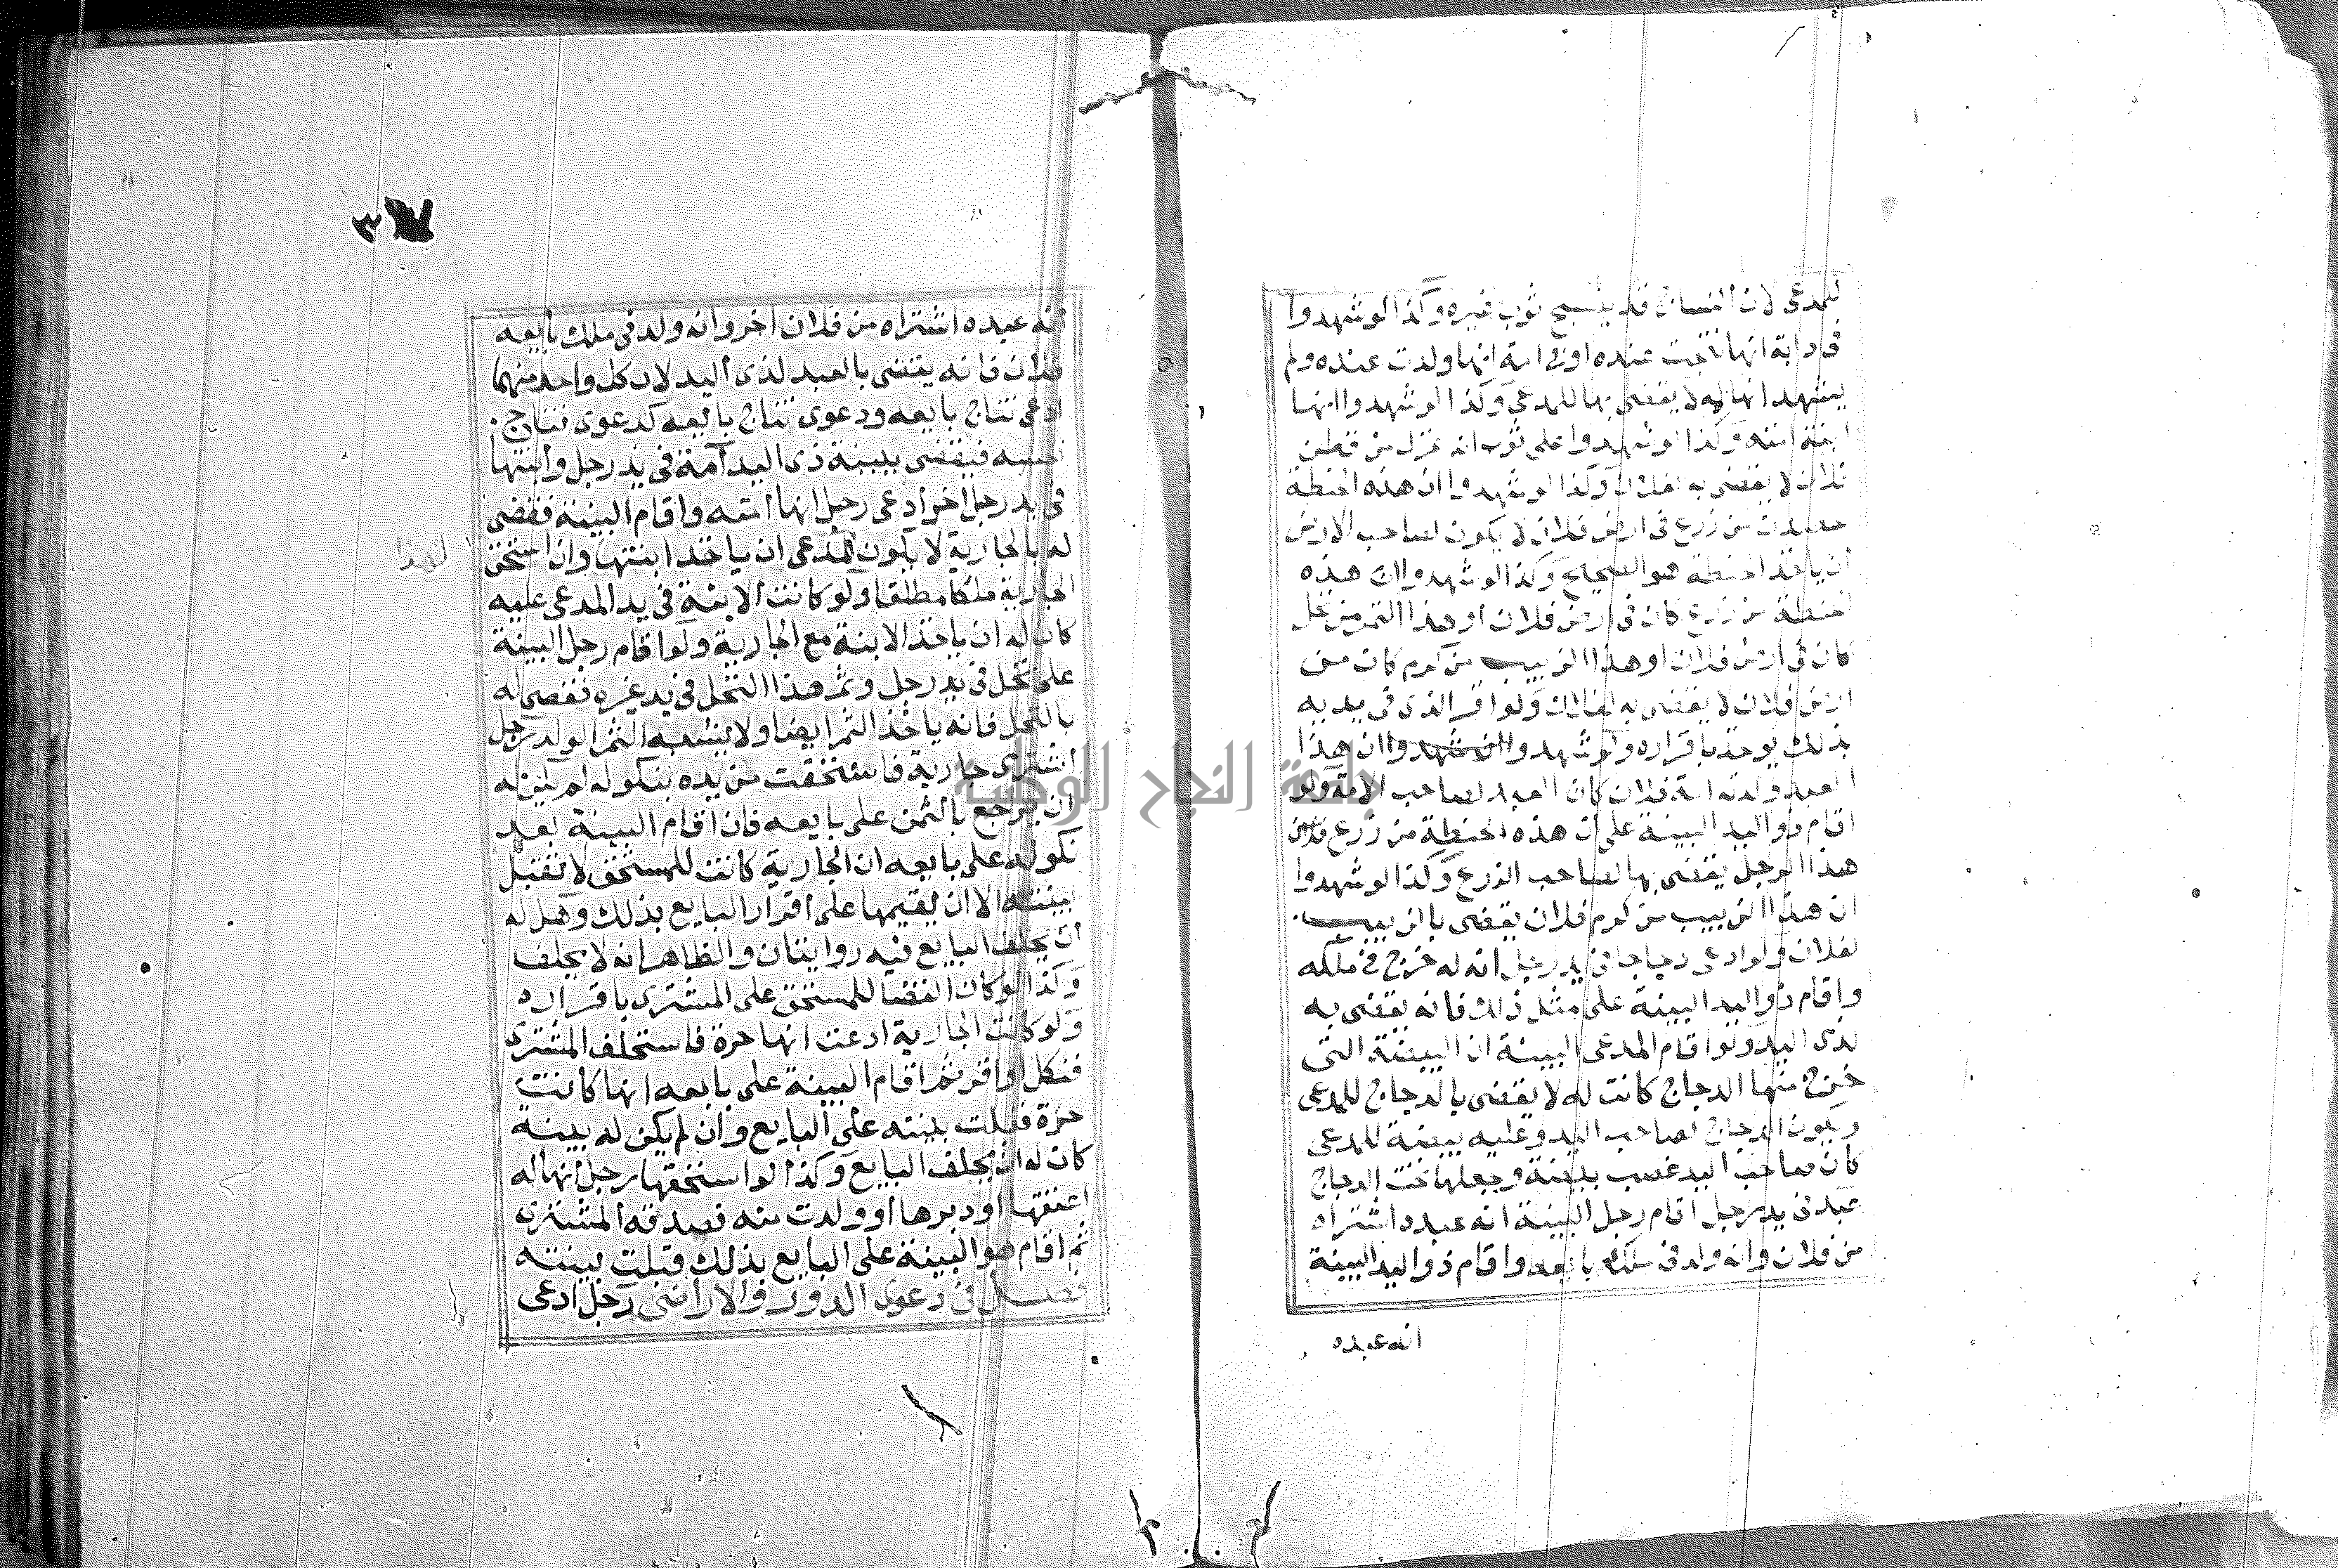 للمدعى لان الانسان قد ينسج ثوب غيره وكذا لو شهدوا
فى دابة انها نتجت عنده او فى امة انها ولدت عنده ولم
يشهد انها له لا يقضى بها للمدعى وكذا لو شهدوا انها
ابنة امته وكذا لو شهدوا على ثوب انه غزل من قطن
فلان لا يقضى به لفلان وكذا لو شهدوا ان هذه الحنطة
حصدت من زرع فى ارض فلان لا يكون لصاحب الارض
ان ياخذ الحنطة هو الصحيح وكذا لو شهدوا ان هذه
الحنطة من زرع كان فى ارض فلان او هذا التمر من نخل
كان فى ارض فلان او هذا الزبيب من كرم كان من
ارض فلان لا يقضى به لفلان ولو اقر الذى فى يديه
بذلك يوخذ باقراره ولو شهدوا ان هذا
العبد ولدته امة فلان كان العبد لصاحب الامة ولو
اقام ذو اليد البينة على ان هذه الحنطة من زرع فلان
هذا الرجل يقضى بها لصاحب الزرع وكذا لو شهدوا
ان هذا الزبيب من كرم فلان يقضى بالزبيب
لفلان ولو ادعى دجاجا فى يد رجل انه له خرج فى ملكه
واقام ذو اليد البينة على مثل ذلك فانه يقضى به
لذى اليد ولو اقام المدعى البينة ان البيضة التى
خرج منها الدجاج كانت له لا يقضى بالدجاج للمدعى
ويكون الدجاج لصاحب اليد وعليه بيضة للمدعى
كان صاحب اليد غصب بيضة وجعلها تحت الدجاج
عبد فى يد رجل اقام رجل البينة انه عبده اشتراه
من فلان وانه ولد فى ملك بايعه واقام ذو اليد البينة
انه عبده
٣
انه عبده اشتراه من فلان اخر وانه ولد فى ملك بايعه
فلان فانه يقضى بالعبد لذى اليد لان كل واحد منهما
ادعى نتاج بايعه ودعوى نتاج بايعه كدعوى نتاج
نفسه فيقضى ببينة ذى اليد امة فى يد رجل وابنتها
فى يد رجل اخر ادعى رجل انها امته واقام البينة فقضى
له بالجارية لا يكون للمدعى ان ياخذ ابنتها وان استحق
الجارية ملكا مطلقا ولو كانت الابنة فى يد المدعى عليه
كان له ان ياخذ الابنة مع الجارية ولو اقام رجل البينة
على نخل فى يد رجل وثمر هذا النخل فى يد غيره فقضى له
بالنخل فانه ياخذ الثمر ايضا ولا يشبه الثمر الولد رجل
اشترى جارية فاستحقت من يده بنكوله لم يكن له
ان يرجع بالثمن على بايعه فان اقام البينة بعد
نكوله على بايعه ان الجارية كانت للمستحق لا تقبل
بينته الا ان يقيمها على اقرار البايع بذلك وهل له
ان يحلف البايع فيه روايتان والظاهر انه لا يحلف
وكذا لو كان القضا للمستحق على المشترى باقراره
ولو كانت الجارية ادعت انها حرة فاستحلف المشترى
فنكل او اقر ثم اقام البينة على بايعه انها كانت
حرة قبلت بينته على البايع وان لم يكن له بينة
كان له ان يحلف البايع وكذا لو استحقها رجل انها له
اعتقها او دبرها او ولدت منه فصدقه المشترى
ثم اقام هو البينة على البايع بذلك قبلت بينته
فصل فى دعوى الدور والاراضى رجل ادعى
جامعة النجاح الوطنية